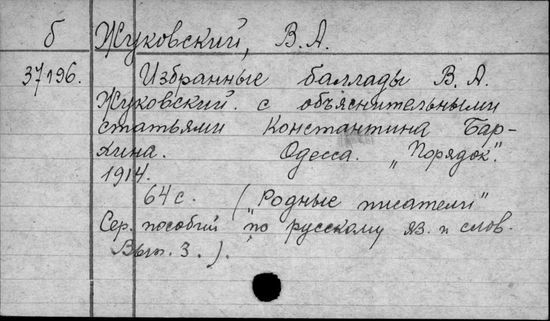 б Жуковский, В.А.
37196. Избранные баллады В.А.
Жуковский. с объяснительными
статьями Константина Бар-
хина. Одесса. „Порядок".
1914.
64 с. („Родные писатели"
Сер. пособий по русскому яз. и слов.
Вып. 3.).